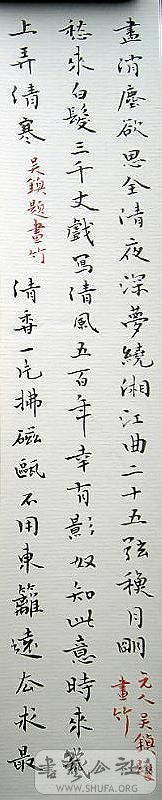 盡消塵欲思全清夜深夢繞湘江曲二十五弦穐月明
元人吳鎮題畫竹
愁來白髮三千丈戲寫清風五百竿幸有影奴知此意時來
上弄清寒
吳鎮題畫竹
清香一片拂磁甌不用東籬遠去求最
書藝公社
WWW.SHUFA.ORG